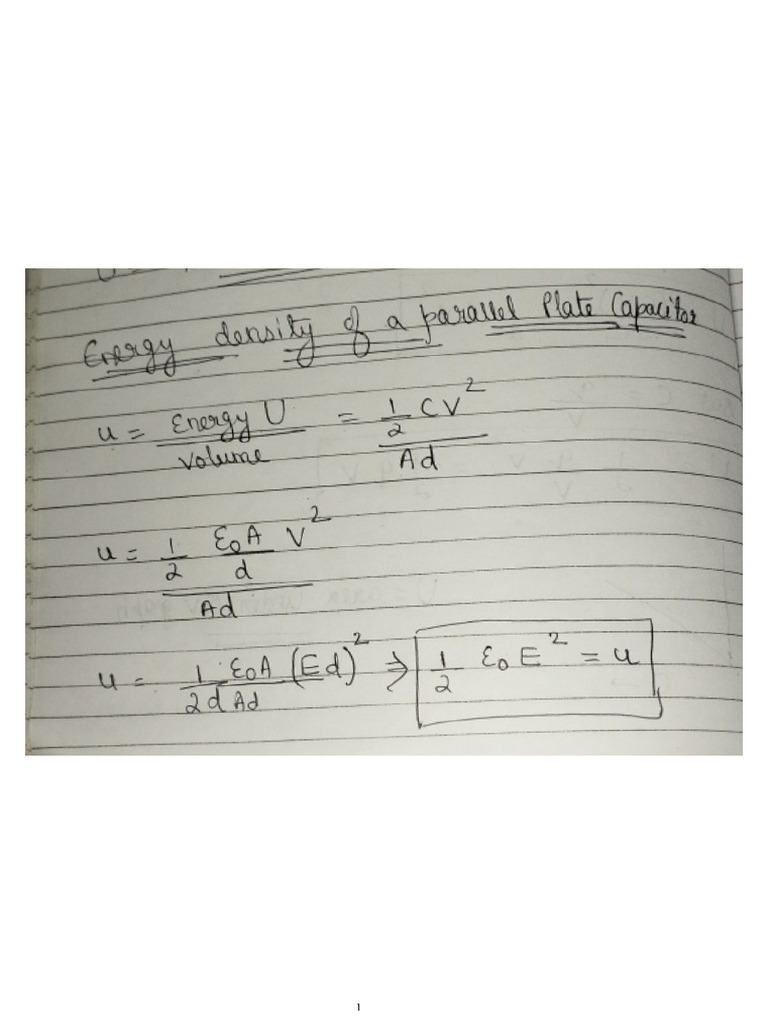 Energy density of a parallel Plate Capacitor
u = Energy U / Volume = 1/2 CV² / Ad
u = 1/2 ε₀A/d V² / Ad
u = 1 ε₀A / 2d Ad (Ed)² ⇒ 1/2 ε₀ E² = u
1